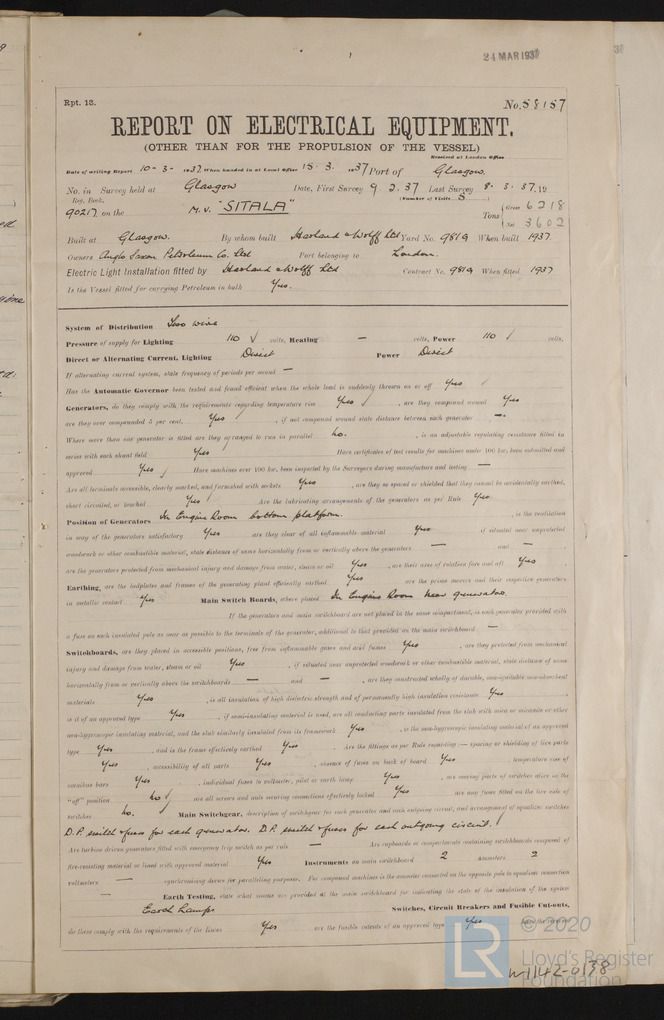 24 MAR 1937
Rpt. 13.
No. 58157
REPORT ON ELECTRICAL EQUIPMENT.
(OTHER THAN FOR THE PROPULSION OF THE VESSEL)
Received at London Office
Date of writing Report 10-3-1937 When handed in at Local Office 15.3.1937 Port of Glasgow.
No. in Survey held at Glasgow Date, First Survey 9.2.37 Last Survey 8.3.37.19
Reg. Book. (Number of Visits 5)
90217 on the M.V. "SITALA" Tons { Gross 6218
Net 3602
Built at Glasgow. By whom built Harland & Wolff Ltd Yard No. 981G When built 1937
Owners Anglo Saxon Petroleum Co. Ltd Port belonging to London.
Electric Light Installation fitted by Harland & Wolff Ltd Contract No. 981G When fitted 1937
Is the Vessel fitted for carrying Petroleum in bulk Yes.
System of Distribution Two wire
Pressure of supply for Lighting 110 volts, Heating — volts, Power 110 volts,
Direct or Alternating Current, Lighting Direct Power Direct
If alternating current system, state frequency of periods per second —
Has the Automatic Governor been tested and found efficient when the whole load is suddenly thrown on or off Yes
Generators, do they comply with the requirements regarding temperature rise Yes, are they compound wound Yes
are they over compounded 5 per cent. Yes, if not compound wound state distance between each generator —.
Where more than one generator is fitted are they arranged to run in parallel No., is an adjustable regulating resistance fitted in
series with each shunt field Yes Have certificates of test results for machines under 100 kw. been submitted and
approved Yes Have machines over 100 kw. been inspected by the Surveyors during manufacture and testing —
Are all terminals accessible, clearly marked, and furnished with sockets Yes, are they so spaced or shielded that they cannot be accidentally earthed,
short circuited, or touched Yes Are the lubricating arrangements of the generators as per Rule Yes
Position of Generators In Engine Room bottom platform., is the ventilation
in way of the generators satisfactory Yes are they clear of all inflammable material Yes if situated near unprotected
woodwork or other combustible material, state distance of same horizontally from or vertically above the generators — and —
are the generators protected from mechanical injury and damage from water, steam or oil Yes, are their axes of rotation fore and aft Yes.
Earthing, are the bedplates and frames of the generating plant efficiently earthed Yes are the prime movers and their respective generators
in metallic contact Yes Main Switch Boards, where placed In Engine Room near generator.
If the generators and main switchboard are not placed in the same compartment, is each generator provided with
a fuse on each insulated pole as near as possible to the terminals of the generator, additional to that provided on the main switchboard —
Switchboards, are they placed in accessible positions, free from inflammable gases and acid fumes Yes, are they protected from mechanical
injury and damage from water, steam or oil Yes, if situated near unprotected woodwork or other combustible material, state distance of same
horizontally from or vertically above the switchboards — and —, are they constructed wholly of durable, non-ignitable non-absorbent
materials Yes, is all insulation of high dielectric strength and of permanently high insulation resistance Yes.
is it of an approved type Yes, if semi-insulating material is used, are all conducting parts insulated from the slab with mica or micanite or other
non-hygroscopic insulating material, and the slab similarly insulated from its framework Yes, is the non-hygroscopic insulating material of an approved
type Yes and is the frame effectively earthed Yes Are the fittings as per Rule regarding:— spacing or shielding of live parts
Yes, accessibility of all parts Yes, absence of fuses on back of board Yes, temperature rise of
omnibus bars Yes, individual fuses to voltmeter, pilot or earth lamp Yes, are moving parts of switches alive in the
"off" position No are all screws and nuts securing connections effectively locked Yes are any fuses fitted on the live side of
switches No. Main Switchgear, description of switchgear for each generator and each outgoing circuit, and arrangement of equaliser switches
D.P. switch & fuses for each generator. D.P. switch & fuses for each outgoing circuit.
Are turbine driven generators fitted with emergency trip switch as per rule — Are cupboards or compartments containing switchboards composed of
fire-resisting material or lined with approved material Yes Instruments on main switchboard 2 ammeters 2
voltmeters — synchronising device for paralleling purposes. For compound machines is the ammeter connected on the opposite pole to equaliser connection
— Earth Testing, state what means are provided at the main switchboard for indicating the state of the insulation of the system
Earth Lamps Switches, Circuit Breakers and Fusible Cut-outs,
do these comply with the requirements of the Rules Yes, are the fusible cutouts of an approved type Yes
LR
© 2020
Lloyd's Register
Foundation
W1142-0138